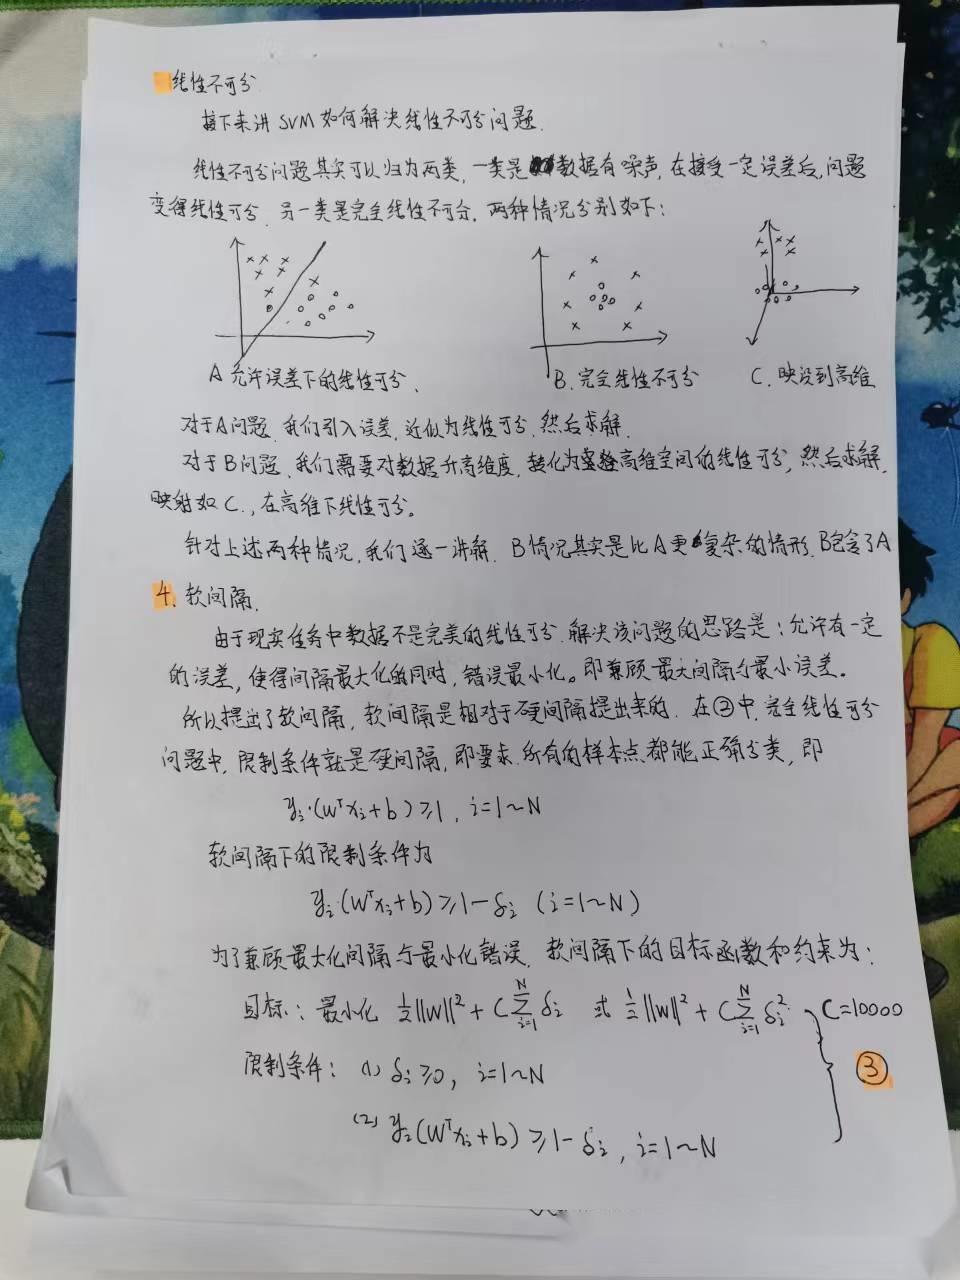 线性不可分
接下来讲 SVM 如何解决线性不可分问题.
线性不可分问题其实可以归为两类, 一类是数据有噪声, 在接受一定误差后, 问题
变得线性可分. 另一类是完全线性不可分. 两种情况分别如下:
A 允许误差下的线性可分.
B. 完全线性不可分
C. 映设到高维
对于A问题, 我们引入误差, 近似为线性可分, 然后求解.
对于B问题, 我们需要对数据升高维度, 转化为高维空间的线性可分, 然后求解,
映射如 C., 在高维下线性可分。
针对上述两种情况, 我们逐一讲解. B情况其实是比A更复杂的情形, B包含了A
4. 软间隔.
由于现实任务中数据不是完美的线性可分. 解决该问题的思路是: 允许有一定
的误差, 使得间隔最大化的同时, 错误最小化。即兼顾最大间隔与最小误差。
所以提出了软间隔, 软间隔是相对于硬间隔提出来的. 在②中, 完全线性可分
问题中, 限制条件就是硬间隔, 即要求, 所有的样本点都能正确分类, 即
yᵢ·(wᵀxᵢ+b) ≥1, i=1~N
软间隔下的限制条件为
yᵢ·(wᵀxᵢ+b) ≥1-δᵢ (i=1~N)
为了兼顾最大化间隔与最小化错误, 软间隔下的目标函数和约束为:
目标: 最小化 ½||w||² + C∑ᵢ₌₁ᴺ δᵢ 或 ½||w||² + C∑ᵢ₌₁ᴺ δᵢ² C=10000
限制条件: (1) δᵢ ≥0, i=1~N
③
(2) yᵢ(wᵀxᵢ+b) ≥1-δᵢ, i=1~N